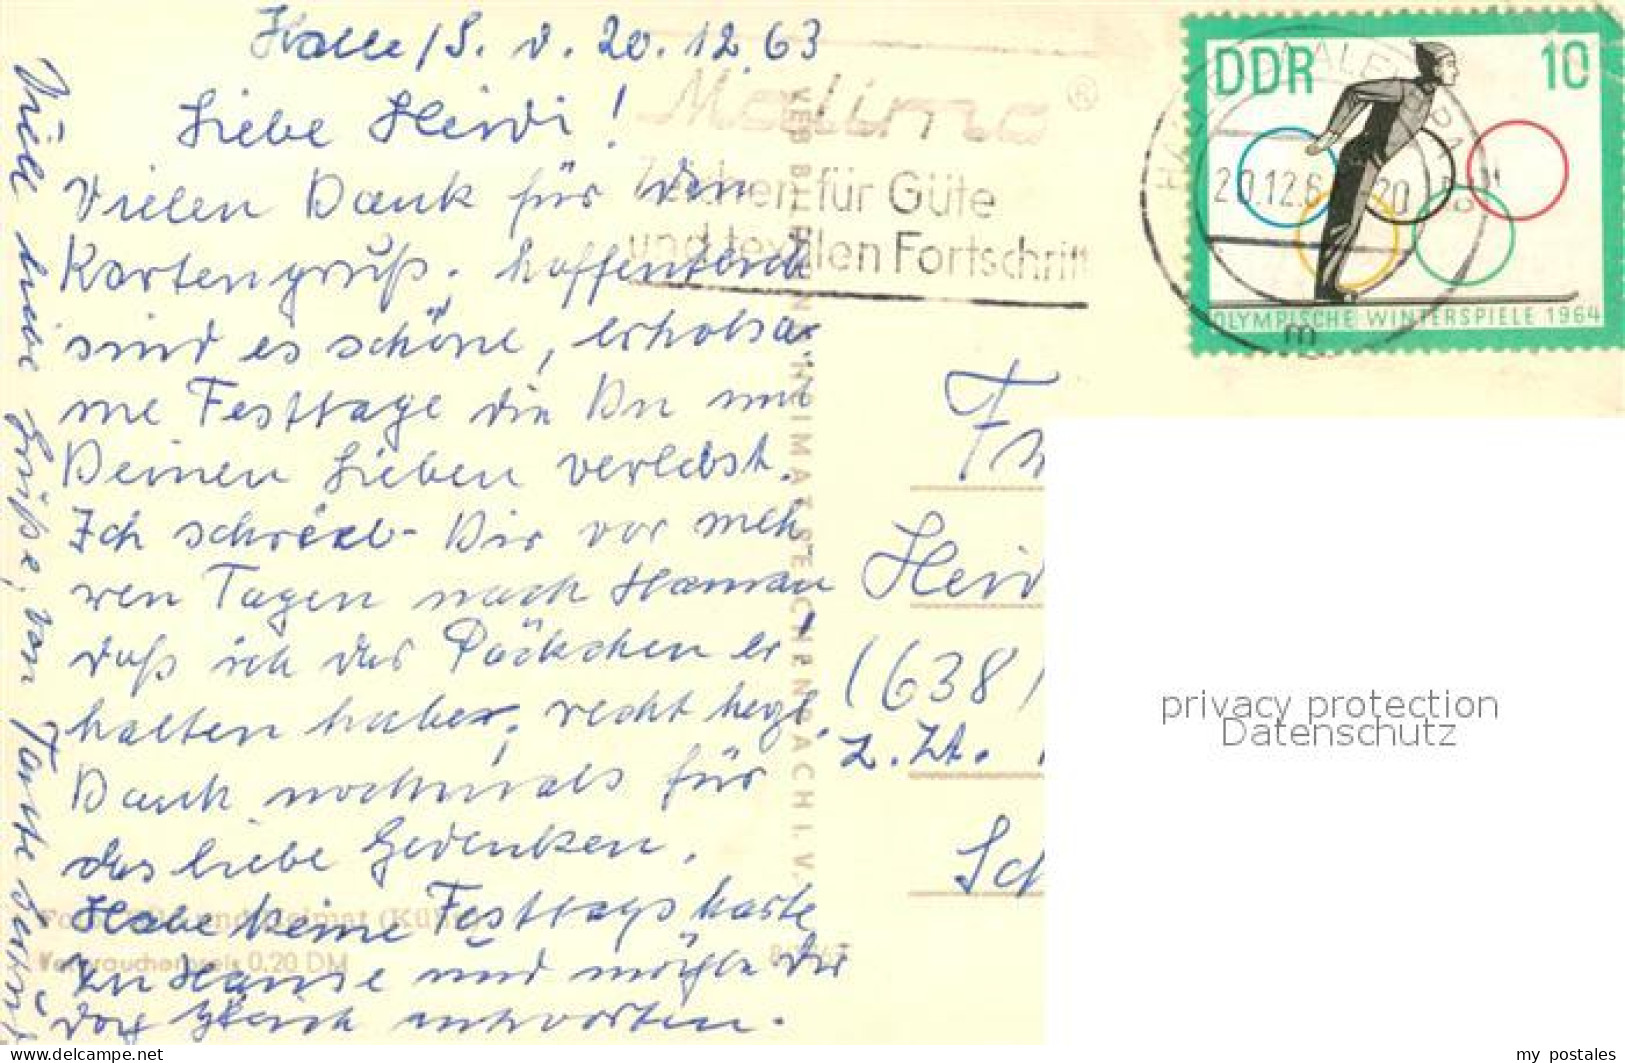 Halle/S. d. 20.12.63
Liebe Heidi!
Vielen Dank für den
Kartengruß. hoffentlich
sind es schöne, erholsa-
me Festtage die Du mit
Deinen Lieben verlebst.
Ich schrieb Dir vor meh
reren Tagen nach
daß ich das Päckchen er
halten habe, recht herzl.
Dank nochmals für
das liebe Gedenken.
Habe keine Festtagskarte
zu Hause und möchte Dir
doch gleich antworten.
Viele liebe Grüße, von Tante
Malimo ®
Zeichen für Güte
und textilen Fortschritt
DDR 10
20.12.6 -20
m
OLYMPISCHE WINTERSPIELE 1964
VEB BILD UND HEIMAT REICHENBACH I. V.
Verbraucherpreis 0,20 DM
Heid
(638)
z. Zt.
Sch
privacy protection
Datenschutz
https://www.delcampe.net
my_postales